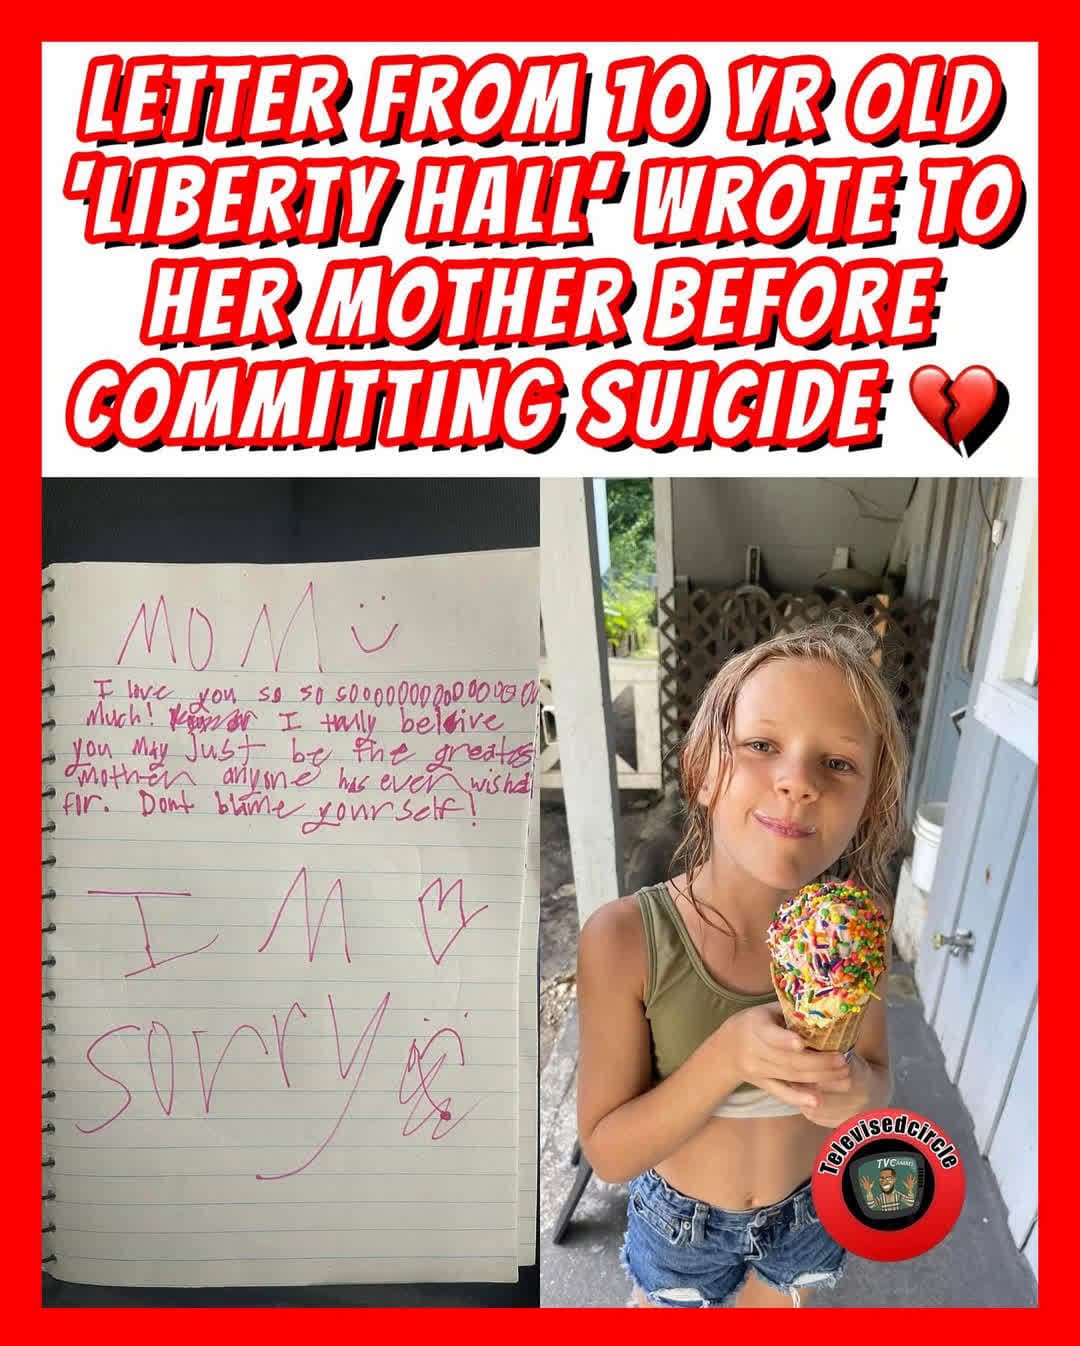 LETTER FROM 10 YR OLD
'LIBERTY HALL' WROTE TO
HER MOTHER BEFORE
COMMITTING SUICIDE 💔
MOM :)
I love you so so sooooooooooooooo
Much! I truly beleive
you May Just be the greates
mother anyone has ever wished
for. Dont blame yourself!
I M ♡
sorry
Televisedcircle